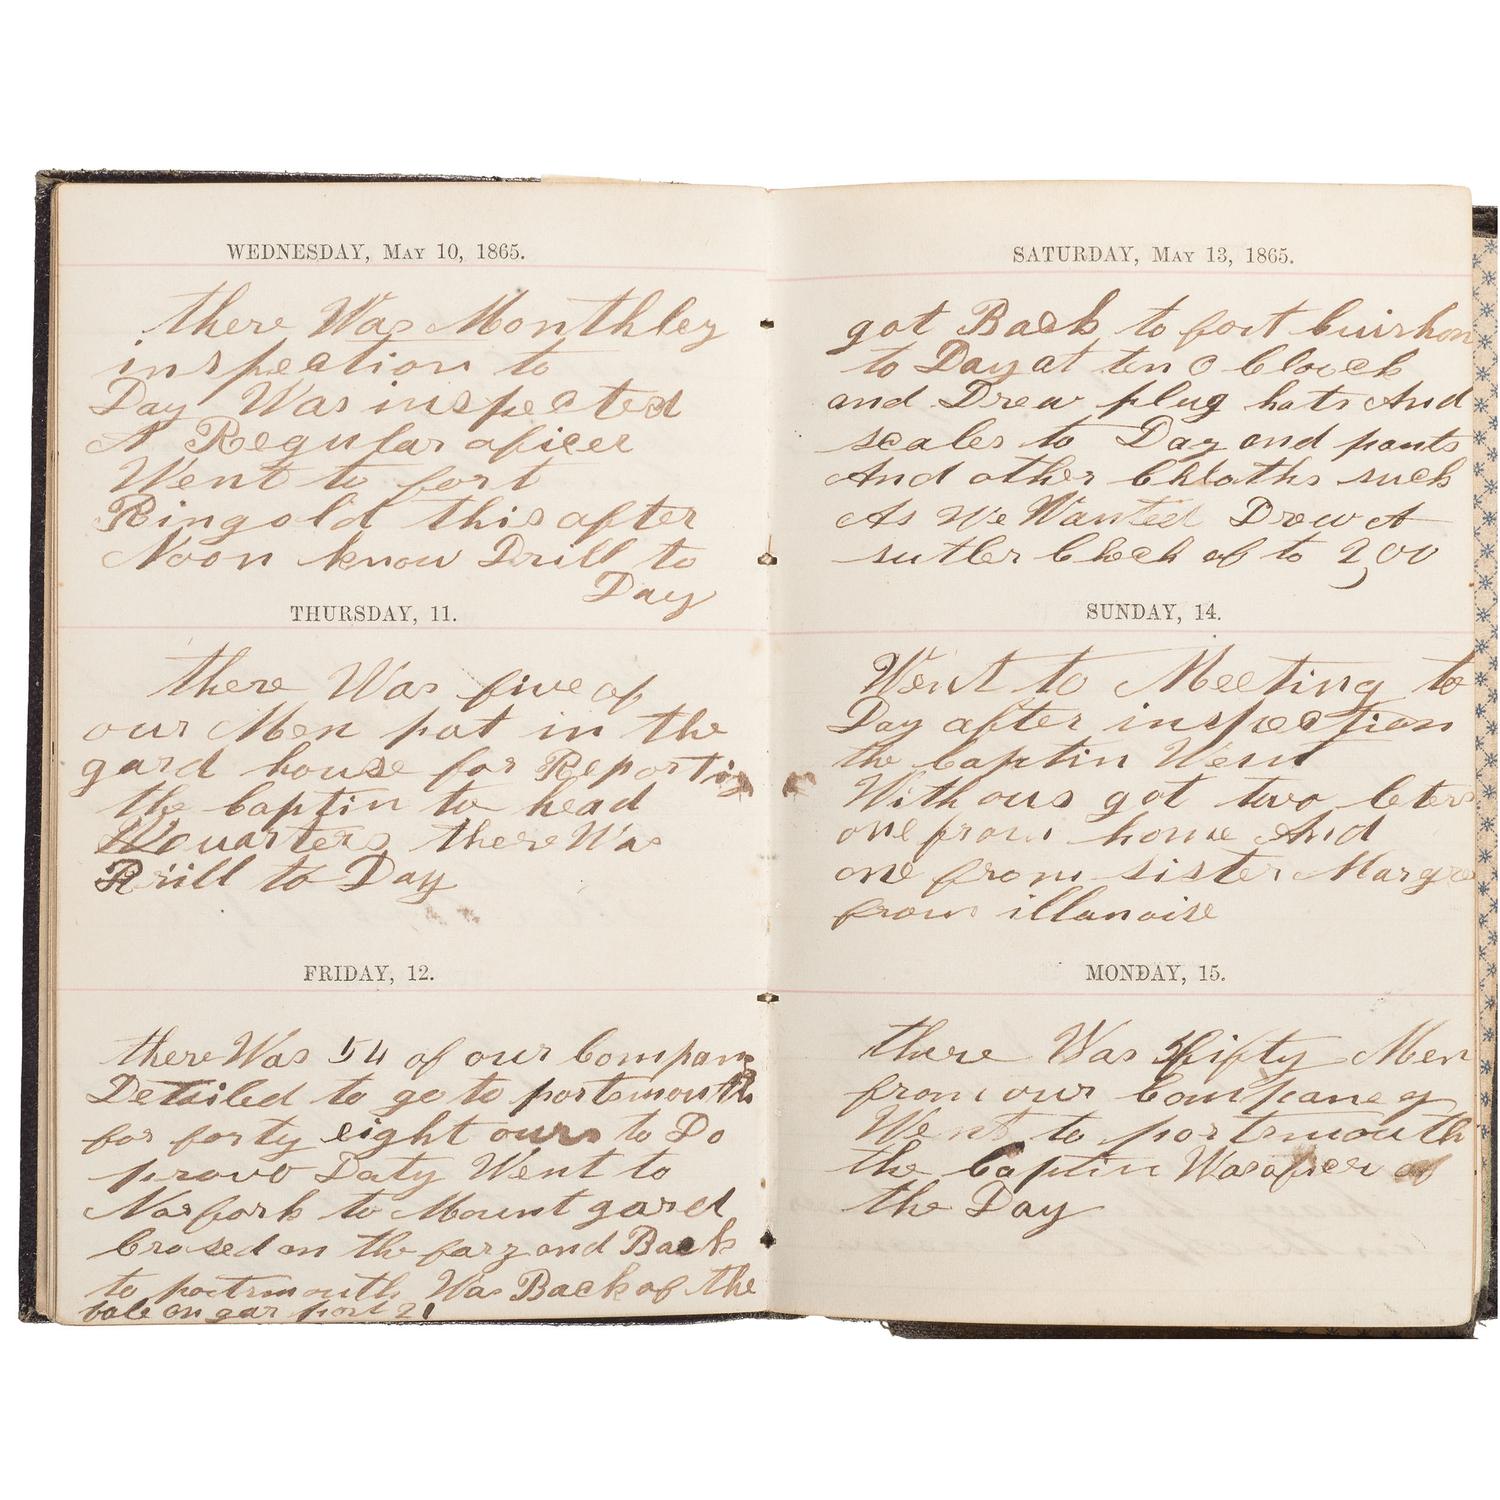 WEDNESDAY, MAY 10, 1865.
there Was Monthley
inspection to
Day Was inspected
A Regular oficer
Went to fort
Ringold this after
Noon know Drill to
Day
THURSDAY, 11.
there Was five of
our Men pot in the
gard house for Reporti
the Captin to head
quarters there Was
Drill to Day
FRIDAY, 12.
there Was 54 of our Company
Detailed to go to portsmouth
for forty eight ours to Do
provo Daty Went to
Norfork to Mount gard
Crosed on the fary and Back
to portsmouth Was Back of the
on gar post 21
SATURDAY, MAY 13, 1865.
got Back to fort
to Day at ten O Clock
and Drew plug hats And
scales to Day and pants
And other Cloaths such
As We Wanted Drew A
sutler Check of to 2,00
SUNDAY, 14.
Went to Meeting to
Day after inspection
the Captin Went
With ous got two leters
one from home And
one from sister Margre
from illanoise
MONDAY, 15.
there Was fifty Men
from our Companey
Went to portsmouth
the Captin Was oficer of
the Day